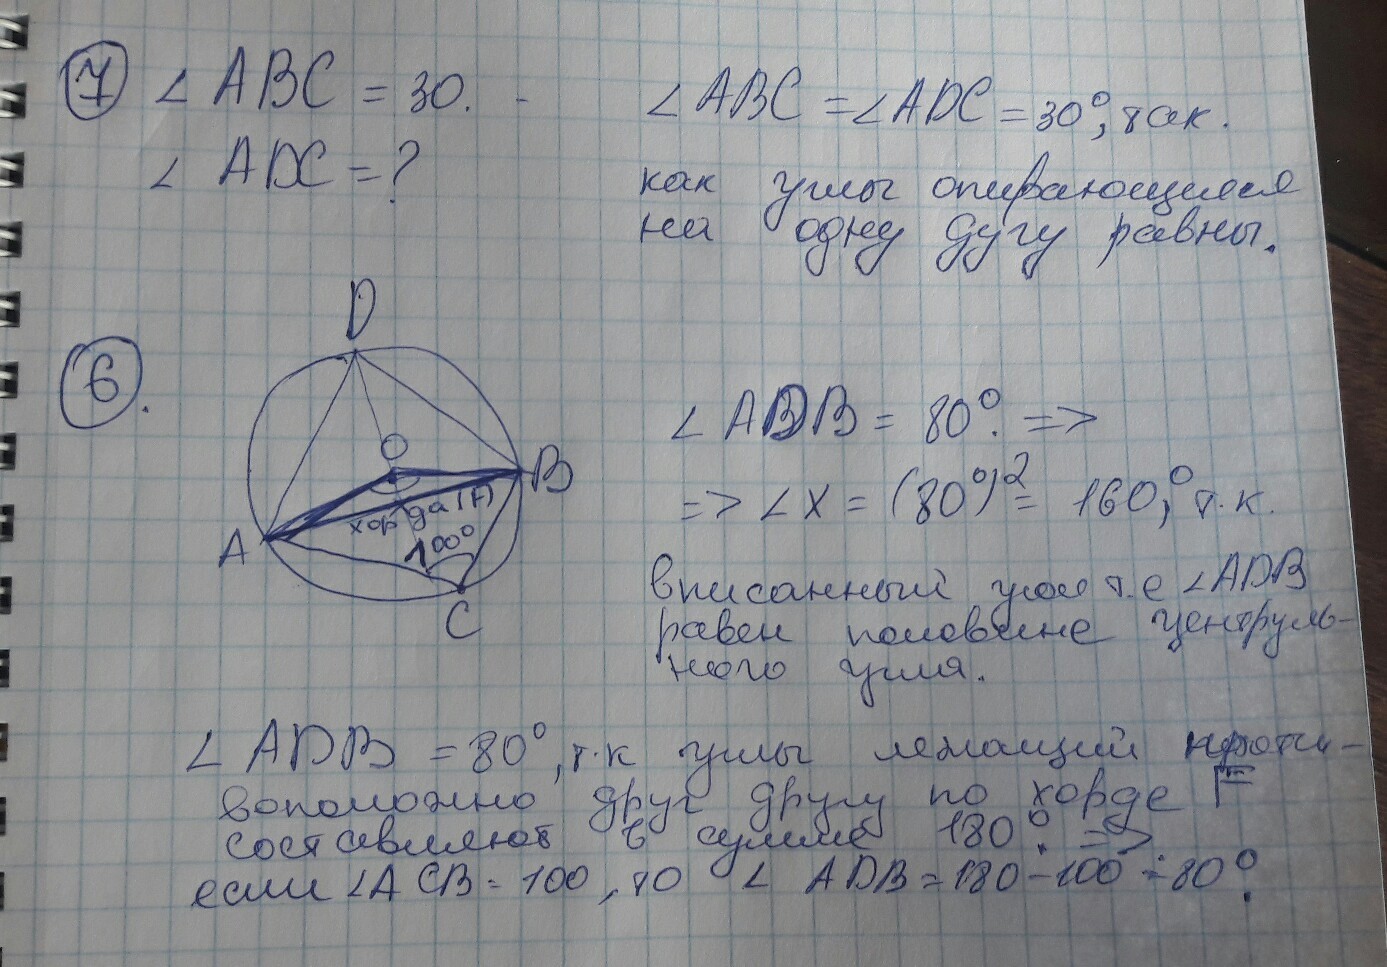 7 ∠ ABC = 30.
∠ ADC = ?
∠ABC = ∠ADC = 30°, так.
как углы опирающиеся
на одну дугу равны.
6.
D
O
B
A
хорда (F)
100°
C
∠ ADB = 80°. =>
=> ∠X = (80°)2 = 160,° т.к.
вписанный угол т.е ∠ADB
равен половине центруль-
ного угля.
∠ ADB = 80°, т.к углы лежащий проти-
воположно друг другу по хорде F
составляют в сумме 180°. =>
если ∠ACB = 100, то ∠ ADB = 180 - 100 = 80°.